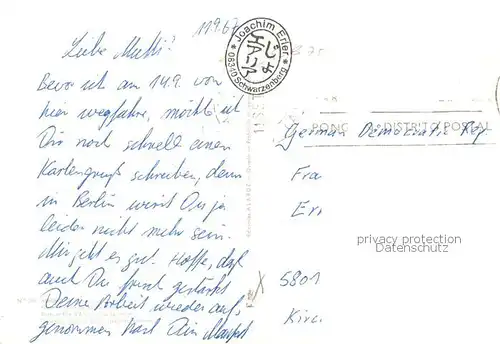 11.9.67
Liebe Mutti!
Bevor ich am 14.9. von
hier wegfahre, möchte ich
Dir noch schnell einen
Kartengruß schreiben, denn
in Berlin wirst Du ja
leider nicht mehr sein.
Mir geht es gut. Hoffe, daß
auch Du frisch gestärkt
Deine Arbeit wieder auf-
genommen hast. Dein
* Joachim Erler *
08340 Schwarzenberg
じょ
エアリア
DISTRITO POSTAL
German Democratic Rep
Fra
Er
5801
Kirc
privacy protection
Datenschutz